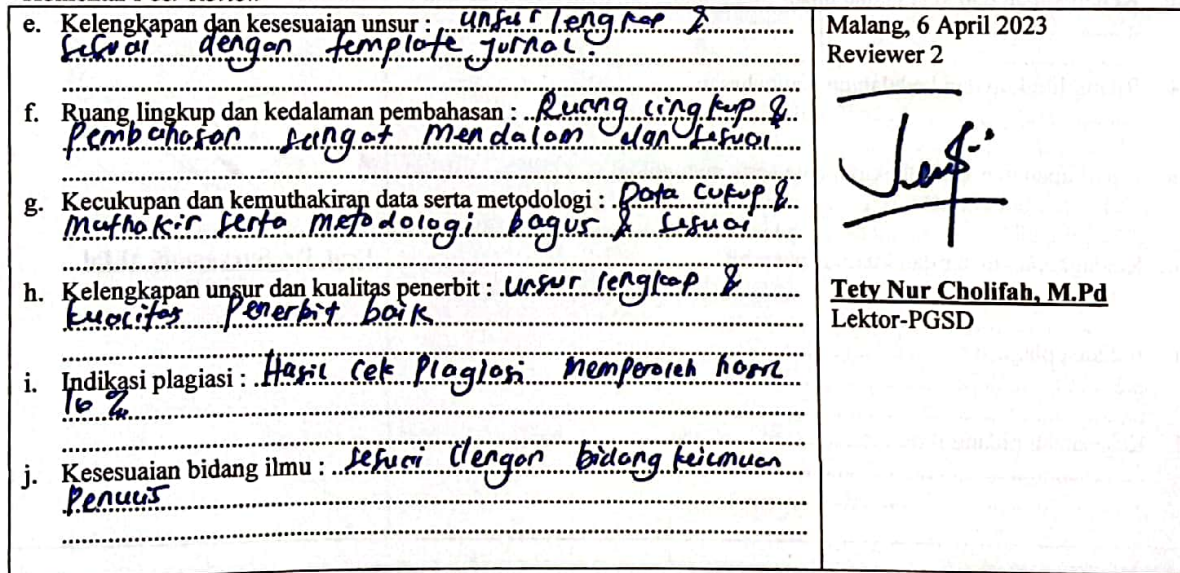 Komentar Peer Review
e. Kelengkapan dan kesesuaian unsur : unsur lengkap &
sesuai dengan template jurnal.
f. Ruang lingkup dan kedalaman pembahasan : Ruang lingkup &
Pembahasan sangat mendalam dan sesuai
g. Kecukupan dan kemuthakiran data serta metodologi : Data cukup &
muthakir serta metodologi bagus & sesuai
h. Kelengkapan unsur dan kualitas penerbit : unsur lengkap &
kualitas Penerbit baik
i. Indikasi plagiasi : Hasil cek Plagiasi memperoleh hasil
16 %
j. Kesesuaian bidang ilmu : sesuai dengan bidang keilmuan
Penulis
Malang, 6 April 2023
Reviewer 2
Tety Nur Cholifah, M.Pd
Lektor-PGSD